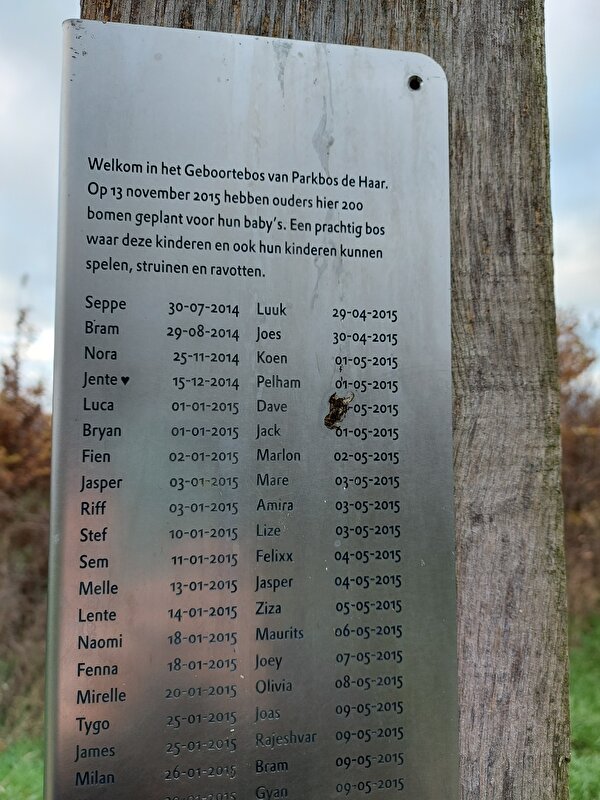 Welkom in het Geboortebos van Parkbos de Haar.
Op 13 november 2015 hebben ouders hier 200
bomen geplant voor hun baby's. Een prachtig bos
waar deze kinderen en ook hun kinderen kunnen
spelen, struinen en ravotten.
Seppe 30-07-2014
Bram 29-08-2014
Nora 25-11-2014
Jente ♥ 15-12-2014
Luca 01-01-2015
Bryan 01-01-2015
Fien 02-01-2015
Jasper 03-01-2015
Riff 03-01-2015
Stef 10-01-2015
Sem 11-01-2015
Melle 13-01-2015
Lente 14-01-2015
Naomi 18-01-2015
Fenna 18-01-2015
Mirelle 20-01-2015
Tygo 25-01-2015
James 25-01-2015
Milan 26-01-2015
Luuk 29-04-2015
Joes 30-04-2015
Koen 01-05-2015
Pelham 01-05-2015
Dave -05-2015
Jack 01-05-2015
Marlon 02-05-2015
Mare 03-05-2015
Amira 03-05-2015
Lize 03-05-2015
Felixx 04-05-2015
Jasper 04-05-2015
Ziza 05-05-2015
Maurits 06-05-2015
Joey 07-05-2015
Olivia 08-05-2015
Joas 09-05-2015
Rajeshvar 09-05-2015
Bram 09-05-2015
Gyan 09-05-2015